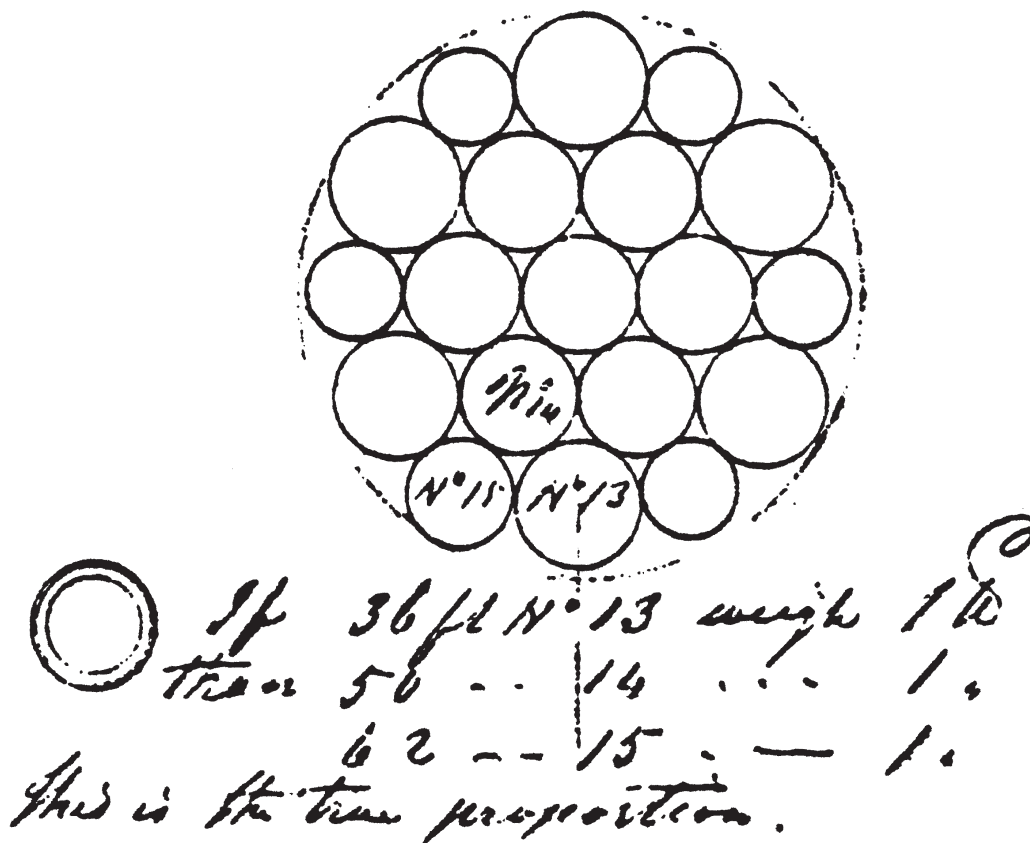 No 15 No 13
If 36 ft No 13 weigh 1 lb
then 50 - - 14 . . . 1 „
62 - - 15 . — 1 „
This is the true proportion.